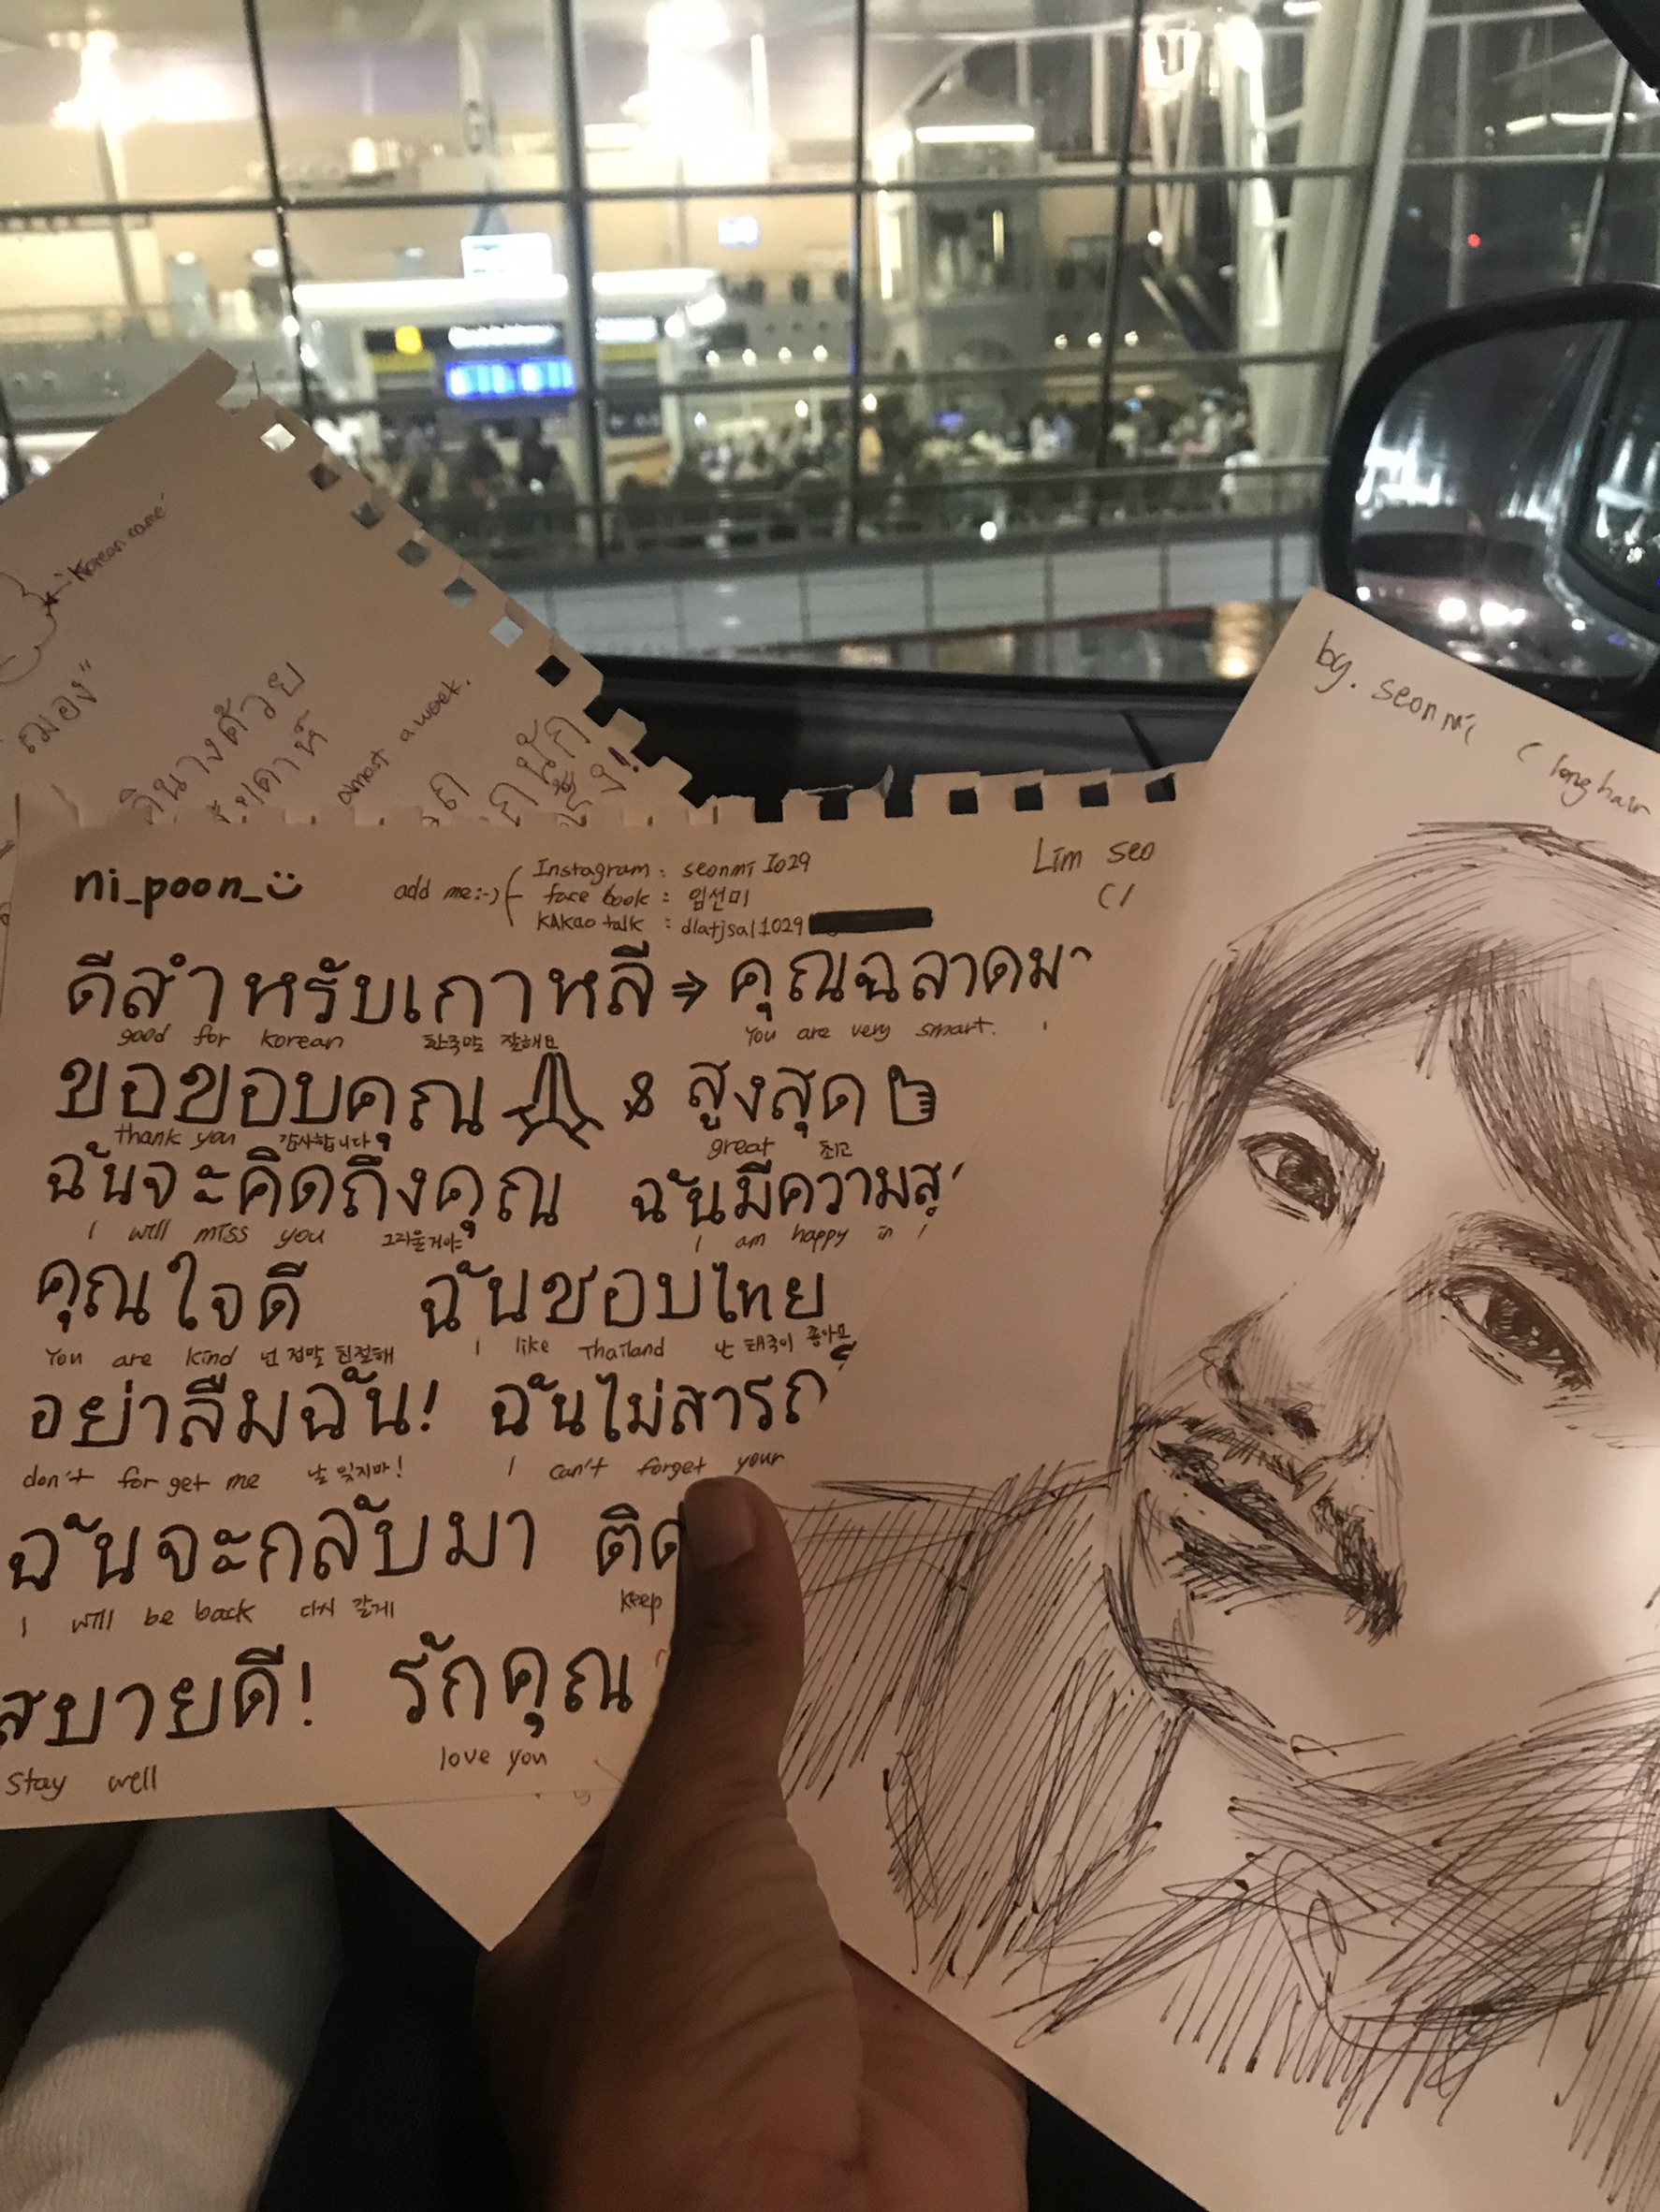 Korean name
almost a week.
by. seonmi (long hair
ni_poon_
add me:-)
Instagram : seonmi 1029
face book : 임선미
KAKao talk : dlatjsal1029
Lim seo
ดีสำหรับเกาหลี ⇒ คุณฉลาดมา
good for korean 한국말 잘해요 You are very smart.
ขอขอบคุณ & สูงสุด
thank you 감사합니다 great 최고
ฉันจะคิดถึงคุณ ฉันมีความสุ
I will miss you 그리울거야 I am happy in
คุณใจดี ฉันชอบไทย
You are kind 넌 정말 친절해 I like Thailand 난 태국이 좋아요
อย่าลืมฉัน! ฉันไม่สารถ
don't forget me 날 잊지마! I can't forget your
ฉันจะกลับมา ติด
I will be back 다시 갈게 keep
สบายดี! รักคุณ
Stay well love you